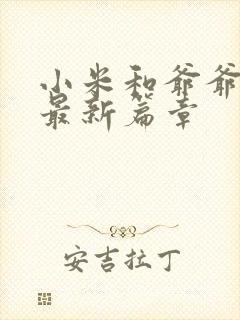 小米和爷爷
最新篇章
安吉拉丁